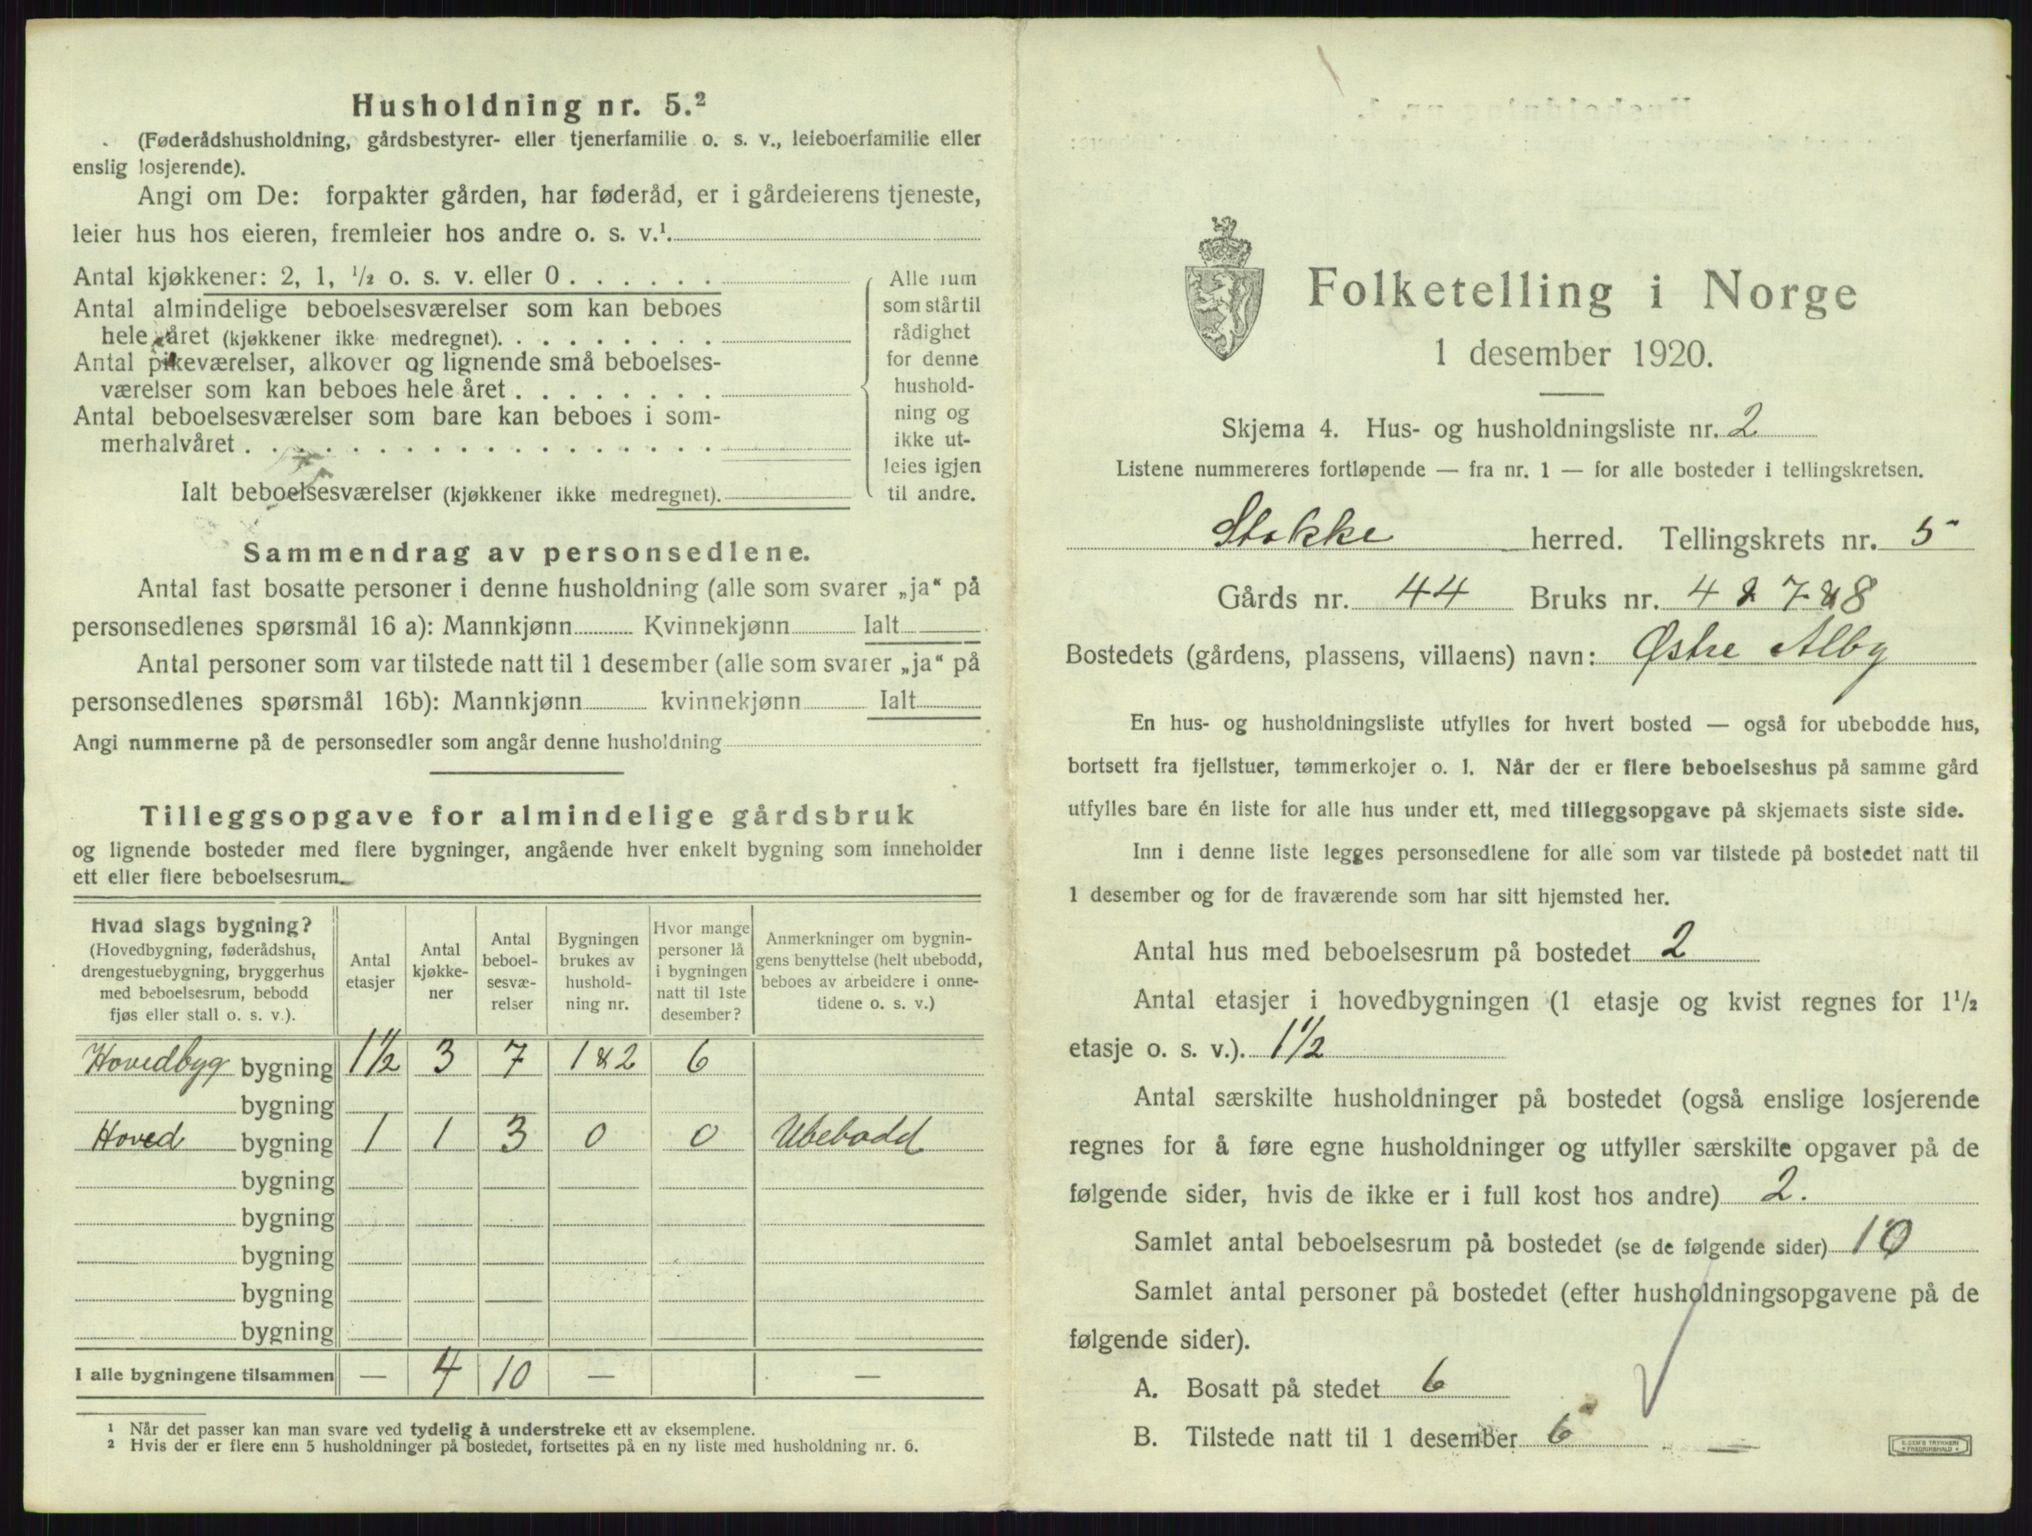 Husholdning nr. 5.²
(Føderådshusholdning, gårdsbestyrer- eller tjenerfamilie o. s. v., leieboerfamilie eller
enslig losjerende).
Angi om De: forpakter gården, har føderåd, er i gårdeierens tjeneste,
leier hus hos eieren, fremleier hos andre o. s. v.¹.
Antal kjøkkener: 2, 1, ¹/₂ o. s. v. eller 0 . . . . . .
Antal almindelige beboelsesværelser som kan beboes
hele året (kjøkkener ikke medregnet). . . . . . . . .
Antal pikeværelser, alkover og lignende små beboelses-
værelser som kan beboes hele året . . . . . . . .
Antal beboelsesværelser som bare kan beboes i som-
merhalvåret . . . . . . . . . . . . . . . . . .
Ialt beboelsesværelser (kjøkkener ikke medregnet).
Alle rum
som står til
rådighet
for denne
hushold-
ning og
ikke ut-
leies igjen
til andre.
Sammendrag av personsedlene.
Antal fast bosatte personer i denne husholdning (alle som svarer „ja“ på
personsedlenes spørsmål 16 a): Mannkjønn Kvinnekjønn Ialt
Antal personer som var tilstede natt til 1 desember (alle som svarer „ja“ på
personsedlenes spørsmål 16b): Mannkjønn kvinnekjønn Ialt
Angi nummerne på de personsedler som angår denne husholdning
Tilleggsopgave for almindelige gårdsbruk
og lignende bosteder med flere bygninger, angående hver enkelt bygning som inneholder
ett eller flere beboelsesrum.
Hvad slags bygning?
(Hovedbygning, føderådshus,
drengestuebygning, bryggerhus
med beboelsesrum, bebodd
fjøs eller stall o. s. v.).
Antal
etasjer
Antal
kjøkke-
ner
Antal
beboel-
sesvæ-
relser
Bygningen
brukes av
hushold-
ning nr.
Hvor mange
personer lå
i bygningen
natt til 1ste
desember?
Anmerkninger om bygnin-
gens benyttelse (helt ubebodd,
beboes av arbeidere i onne-
tidene o. s. v.)
Hovedbyg bygning 1½ 3 7 1 & 2 6
bygning
Hoved bygning 1 1 3 0 0 Ubebodd
bygning
bygning
bygning
bygning
bygning
I alle bygningene tilsammen — 4 10 — —
¹ Når det passer kan man svare ved tydelig å understreke ett av eksemplene.
² Hvis der er flere enn 5 husholdninger på bostedet, fortsettes på en ny liste med husholdning nr. 6.
Folketelling i Norge
1 desember 1920.
Skjema 4. Hus- og husholdningsliste nr. 2
Listene nummereres fortløpende — fra nr. 1 — for alle bosteder i tellingskretsen.
Stokke herred. Tellingskrets nr. 5
Gårds nr. 44 Bruks nr. 4 & 7 & 8
Bostedets (gårdens, plassens, villaens) navn: Østre Alby
En hus- og husholdningsliste utfylles for hvert bosted — også for ubebodde hus,
bortsett fra fjellstuer, tømmerkojer o. l. Når der er flere beboelseshus på samme gård
utfylles bare én liste for alle hus under ett, med tilleggsopgave på skjemaets siste side.
Inn i denne liste legges personsedlene for alle som var tilstede på bostedet natt til
1 desember og for de fraværende som har sitt hjemsted her.
Antal hus med beboelsesrum på bostedet 2
Antal etasjer i hovedbygningen (1 etasje og kvist regnes for 1¹/₂
etasje o. s. v.). 1½
Antal særskilte husholdninger på bostedet (også enslige losjerende
regnes for å føre egne husholdninger og utfyller særskilte opgaver på de
følgende sider, hvis de ikke er i full kost hos andre) 2.
Samlet antal beboelsesrum på bostedet (se de følgende sider) 10
Samlet antal personer på bostedet (efter husholdningsopgavene på de
følgende sider).
A. Bosatt på stedet 6
B. Tilstede natt til 1 desember 6